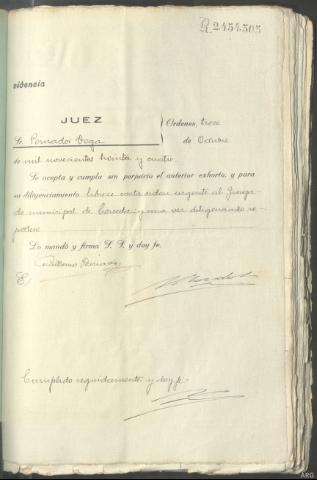 R. 2.454.505
videncia
JUEZ
Sr. Pernador Vega
Ordenes, trece
de Octubre
de mil novecientos treinta y cuatro.
Se acepta y cumpla sin perjuicio el anterior exhorto, y para
su diligenciamiento, librese carta orden urgente al Juzga-
do municipal de Cerceda, y una vez diligenciado re-
portese
Lo mandó y firma S. S. y doy fe.
E/
Cumplido seguidamente y doy fe
ARG